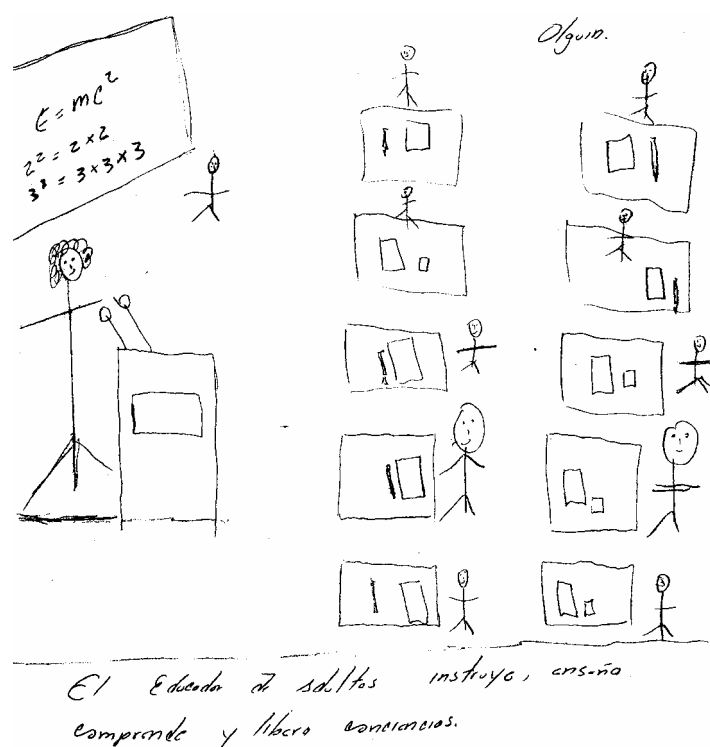 Olguin.
E = mc²
2² = 2 x 2
3³ = 3 x 3 x 3
El Educador de adultos instruye, enseña
comprende y libera conciencias.